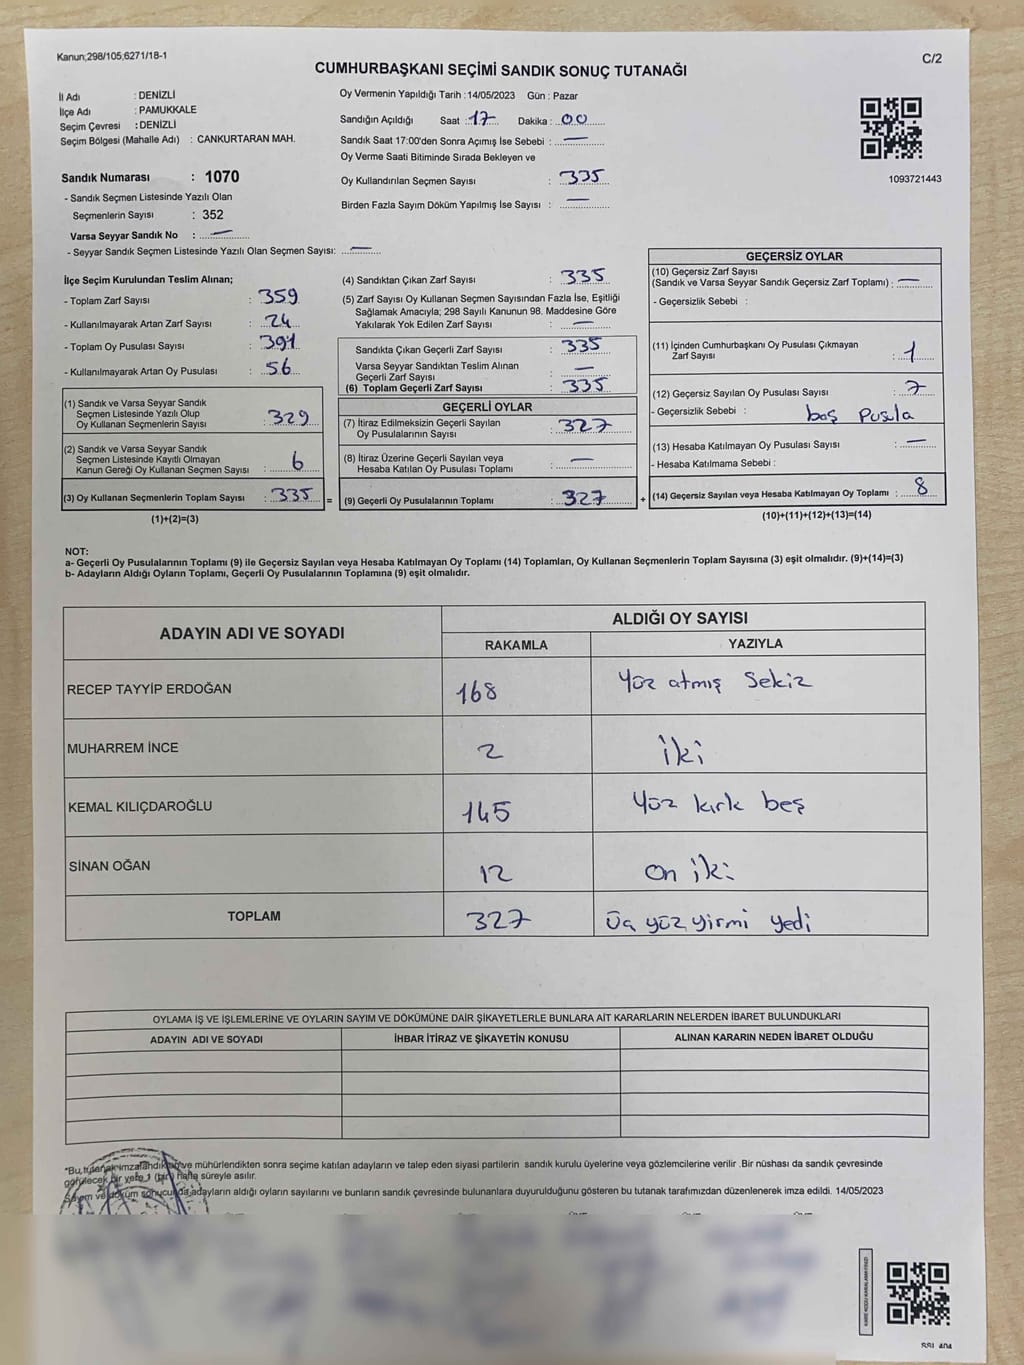 Kanun;298/105;6271/18-1
C/2
CUMHURBAŞKANI SEÇİMİ SANDIK SONUÇ TUTANAĞI
İl Adı : DENİZLİ
İlçe Adı : PAMUKKALE
Seçim Çevresi : DENİZLİ
Seçim Bölgesi (Mahalle Adı) : CANKURTARAN MAH.
Sandık Numarası : 1070
- Sandık Seçmen Listesinde Yazılı Olan
Seçmenlerin Sayısı : 352
Varsa Seyyar Sandık No : —
- Seyyar Sandık Seçmen Listesinde Yazılı Olan Seçmen Sayısı: —
Oy Vermenin Yapıldığı Tarih : 14/05/2023 Gün : Pazar
Sandığın Açıldığı Saat : 17 Dakika : 00
Sandık Saat 17:00'den Sonra Açımış İse Sebebi : —
Oy Verme Saati Bitiminde Sırada Bekleyen ve
Oy Kullandırılan Seçmen Sayısı : 335
Birden Fazla Sayım Döküm Yapılmış İse Sayısı : —
1093721443
İlçe Seçim Kurulundan Teslim Alınan;
- Toplam Zarf Sayısı : 359
- Kullanılmayarak Artan Zarf Sayısı : 24
- Toplam Oy Pusulası Sayısı : 391
- Kullanılmayarak Artan Oy Pusulası : 56
(1) Sandık ve Varsa Seyyar Sandık
Seçmen Listesinde Yazılı Olup
Oy Kullanan Seçmenlerin Sayısı : 329
(2) Sandık ve Varsa Seyyar Sandık
Seçmen Listesinde Kayıtlı Olmayan
Kanun Gereği Oy Kullanan Seçmen Sayısı : 6
(3) Oy Kullanan Seçmenlerin Toplam Sayısı : 335 =
(1)+(2)=(3)
(4) Sandıktan Çıkan Zarf Sayısı : 335
(5) Zarf Sayısı Oy Kullanan Seçmen Sayısından Fazla İse, Eşitliği
Sağlamak Amacıyla; 298 Sayılı Kanunun 98. Maddesine Göre
Yakılarak Yok Edilen Zarf Sayısı : —
Sandıkta Çıkan Geçerli Zarf Sayısı : 335
Varsa Seyyar Sandıktan Teslim Alınan
Geçerli Zarf Sayısı : —
(6) Toplam Geçerli Zarf Sayısı : 335
GEÇERLİ OYLAR
(7) İtiraz Edilmeksizin Geçerli Sayılan
Oy Pusulalarının Sayısı : 327
(8) İtiraz Üzerine Geçerli Sayılan veya
Hesaba Katılan Oy Pusulası Toplamı : —
(9) Geçerli Oy Pusulalarının Toplamı : 327 +
GEÇERSİZ OYLAR
(10) Geçersiz Zarf Sayısı
(Sandık ve Varsa Seyyar Sandık Geçersiz Zarf Toplamı) : —
- Geçersizlik Sebebi :
(11) İçinden Cumhurbaşkanı Oy Pusulası Çıkmayan
Zarf Sayısı : 1
(12) Geçersiz Sayılan Oy Pusulası Sayısı : 7
- Geçersizlik Sebebi : boş pusula
(13) Hesaba Katılmayan Oy Pusulası Sayısı : —
- Hesaba Katılmama Sebebi :
(14) Geçersiz Sayılan veya Hesaba Katılmayan Oy Toplamı : 8
(10)+(11)+(12)+(13)=(14)
NOT:
a- Geçerli Oy Pusulalarının Toplamı (9) ile Geçersiz Sayılan veya Hesaba Katılmayan Oy Toplamı (14) Toplamları, Oy Kullanan Seçmenlerin Toplam Sayısına (3) eşit olmalıdır. (9)+(14)=(3)
b- Adayların Aldığı Oyların Toplamı, Geçerli Oy Pusulalarının Toplamına (9) eşit olmalıdır.
ADAYIN ADI VE SOYADI
ALDIĞI OY SAYISI
RAKAMLA YAZIYLA
RECEP TAYYİP ERDOĞAN 168 Yüz atmış Sekiz
MUHARREM İNCE 2 iki
KEMAL KILIÇDAROĞLU 145 Yüz kırk beş
SİNAN OĞAN 12 on iki
TOPLAM 327 Üç yüz yirmi yedi
OYLAMA İŞ VE İŞLEMLERİNE VE OYLARIN SAYIM VE DÖKÜMÜNE DAİR ŞİKAYETLERLE BUNLARA AİT KARARLARIN NELERDEN İBARET BULUNDUKLARI
ADAYIN ADI VE SOYADI İHBAR İTİRAZ VE ŞİKAYETİN KONUSU ALINAN KARARIN NEDEN İBARET OLDUĞU
"Bu, tutanak imzalandıktan ve mühürlendikten sonra seçime katılan adayların ve talep eden siyasi partilerin sandık kurulu üyelerine veya gözlemcilerine verilir .Bir nüshası da sandık çevresinde
görülecek bir yere 1 (bir) hafta süreyle asılır.
Sayım ve döküm sonucunda adayların aldığı oyların sayılarını ve bunların sandık çevresinde bulunanlara duyurulduğunu gösteren bu tutanak tarafımızdan düzenlenerek imza edildi. 14/05/2023